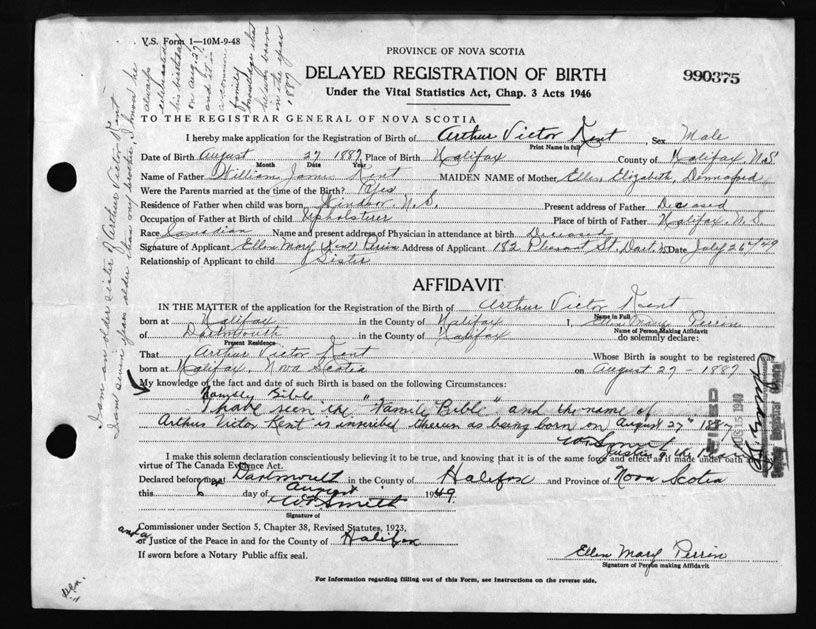 V.S. Form 1—10M-9-48
PROVINCE OF NOVA SCOTIA
DELAYED REGISTRATION OF BIRTH
990375
Under the Vital Statistics Act, Chap. 3 Acts 1946
TO THE REGISTRAR GENERAL OF NOVA SCOTIA
I hereby make application for the Registration of Birth of Arthur Victor Kent, Sex Male
Print Name in Full
Date of Birth August 27 1887 Place of Birth Halifax County of Halifax, N.S.
Month Date Year
Name of Father William James Kent MAIDEN NAME of Mother Ellen Elizabeth
Were the Parents married at the time of the Birth? Yes
Residence of Father when child was born Windsor N.S. Present address of Father Deceased
Occupation of Father at Birth of child Upholsterer Place of birth of Father Halifax, N.S.
Race Canadian Name and present address of Physician in attendance at birth Deceased
Signature of Applicant Ellen Mary (Kent) Perrin Address of Applicant 182 Pleasant St. Dart. Date July 26/49
Relationship of Applicant to child Sister
AFFIDAVIT
IN THE MATTER of the application for the Registration of the Birth of Arthur Victor Kent
Name in Full
born at Halifax in the County of Halifax I, Ellen Mary Perrin
Name of Person Making Affidavit
of Dartmouth in the County of Halifax do solemnly declare:
Present Residence
That Arthur Victor Kent Whose Birth is sought to be registered
born at Halifax, Nova Scotia on August 27 - 1887
My knowledge of the fact and date of such Birth is based on the following Circumstances:
Family Bible
I have seen the "Family Bible" and the name of
Arthur Victor Kent is inscribed therein as being born on August 27th 1887
W Smith
Justice of the Peace
I make this solemn declaration conscientiously believing it to be true, and knowing that it is of the same force and effect as if made under oath and
virtue of The Canada Evidence Act.
Declared before me at Dartmouth in the County of Halifax and Province of Nova Scotia
this day of August 1949.
W Smith
Signature of
Commissioner under Section 5, Chapter 38, Revised Statutes, 1923,
and a
or Justice of the Peace in and for the County of Halifax
If sworn before a Notary Public affix seal.
Ellen Mary Perrin
Signature of Person making Affidavit
For Information regarding filling out of this Form, see Instructions on the reverse side.
I am an older sister of Arthur Victor Kent
I am seven years older than my brother, I know he
always
celebrated
his birthday
on Aug. 27,
and it is
common
family
knowledge that
he was born
in the year
1887